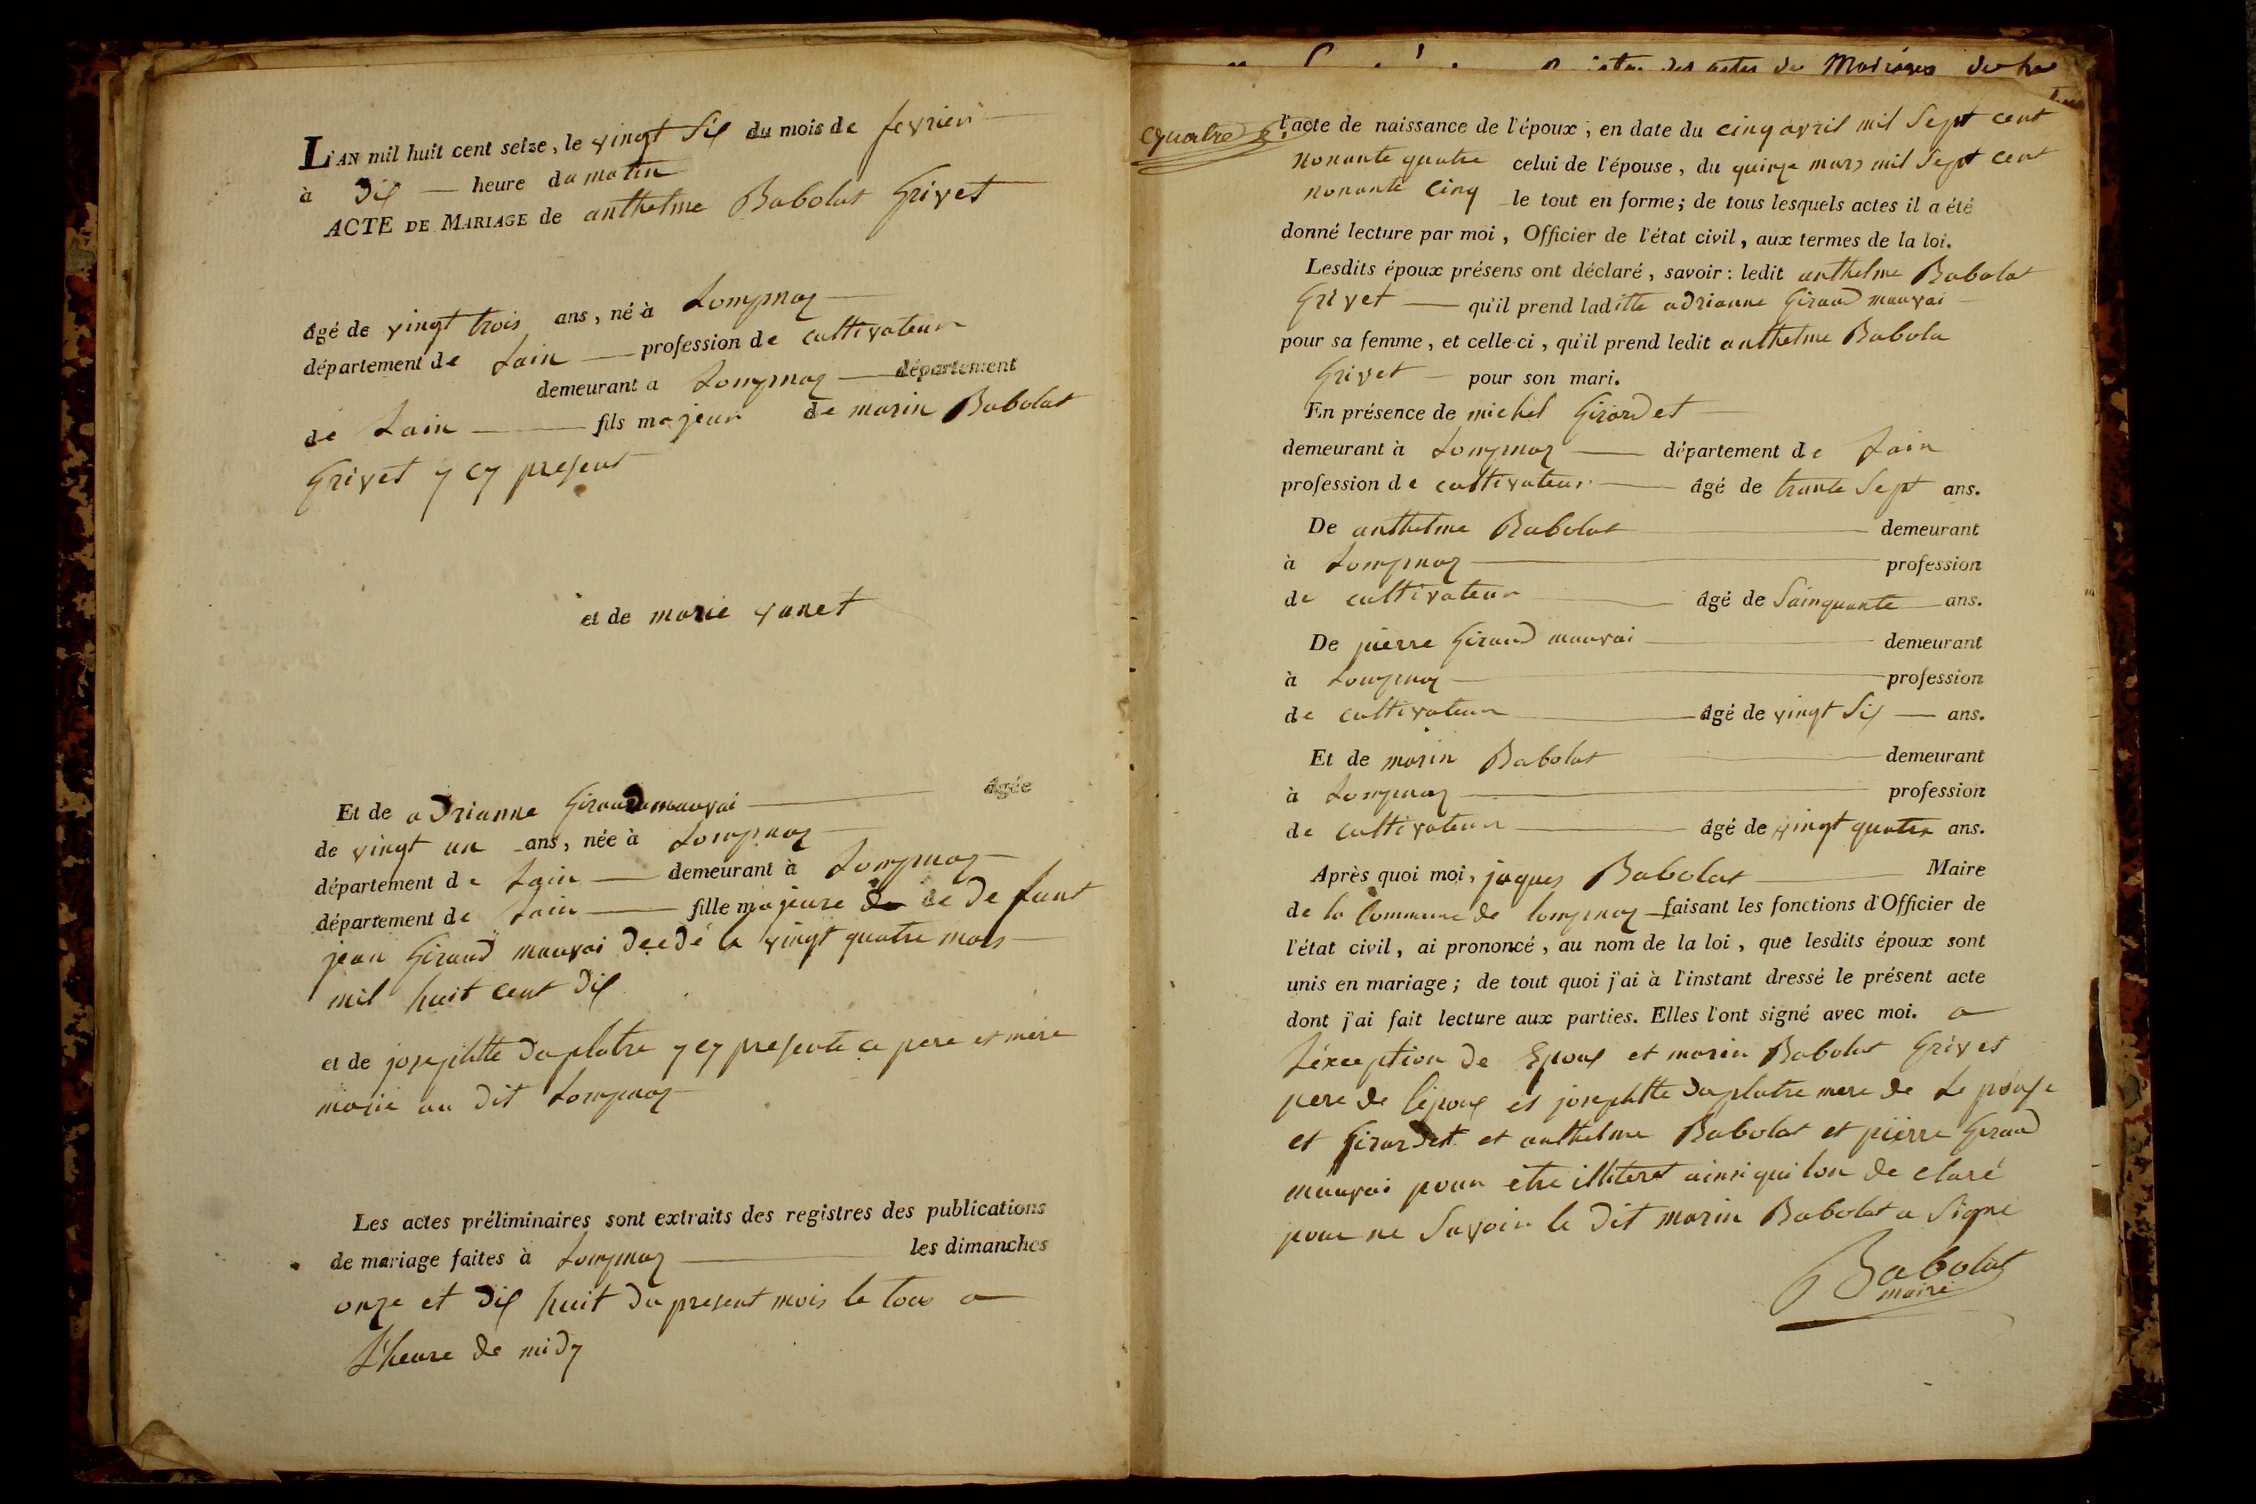 L'AN mil huit cent seize, le vingt Six du mois de fevrier
à dix heure du matin
ACTE DE MARIAGE de anthelme Babolat Grivet
âgé de vingt trois ans, né à Lompnaz
département de Lain profession de cultivateur
demeurant a Lompnaz département
de Lain fils majeur de marin Babolat
Grivet y cy present
et de marie vanet
Et de adrianne Giraud mauvai âgée
de vingt un ans, née à Lompnaz
département de Lain demeurant à Lompnaz
département de Lain fille majeure de de funt
jean Giraud mauvai decdé le vingt quatre mars
mil huit cent dix
et de josephtte duplatre y cy presente ce pere et mere
marié au dit Lompnaz
Les actes préliminaires sont extraits des registres des publications
de mariage faites à Lompnaz les dimanches
onze et dix huit du present mois le tous a
Lheure de midy
des actes de Mariages
quatre
l'acte de naissance de l'époux, en date du cinq avril mil Sept cent
nonante quatre celui de l'épouse, du quinze mars mil Sept cent
nonante cinq le tout en forme; de tous lesquels actes il a été
donné lecture par moi, Officier de l'état civil, aux termes de la loi.
Lesdits époux présens ont déclaré, savoir: ledit anthelme Babolat
Grivet qu'il prend laditte adrianne Giraud mauvai
pour sa femme, et celle-ci, qu'il prend ledit anthelme Babola
Grivet pour son mari.
En présence de michel Girardet
demeurant à Lompnaz département de Lain
profession de cultivateur âgé de trante Sept ans.
De anthelme Babolat demeurant
à Lompnaz profession
de cultivateur âgé de Sainquante ans.
De pierre Giraud mauvai demeurant
à Lompnaz profession
de cultivateur âgé de vingt Six ans.
Et de marin Babolat demeurant
à Lompnaz profession
de cultivateur âgé de vingt quatre ans.
Après quoi moi, jaques Babolat Maire
de la Commune de lompnaz faisant les fonctions d'Officier de
l'état civil, ai prononcé, au nom de la loi, que lesdits époux sont
unis en mariage; de tout quoi j'ai à l'instant dressé le présent acte
dont j'ai fait lecture aux parties. Elles l'ont signé avec moi. a
Léxception de Epoux et marin Babolat Grivet
pere de lépoux et josephtte duplatre mere de Le pouse
et Girardet et anthelme Babolat et pierre Giraud
mauvai pour etre illiteret ainsi qui lon de claré
pour ne Savoir le dit marin Babolat a Signé
Babolat
maire